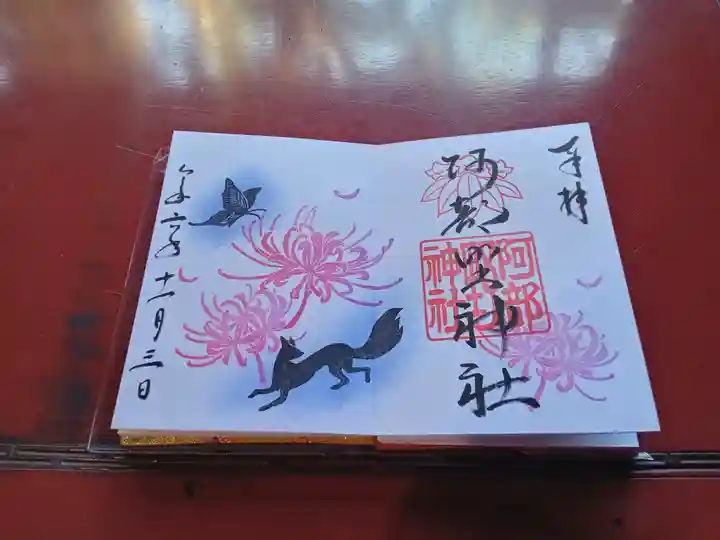 奉拝
阿部野神社
阿部
野神社
十一月三日